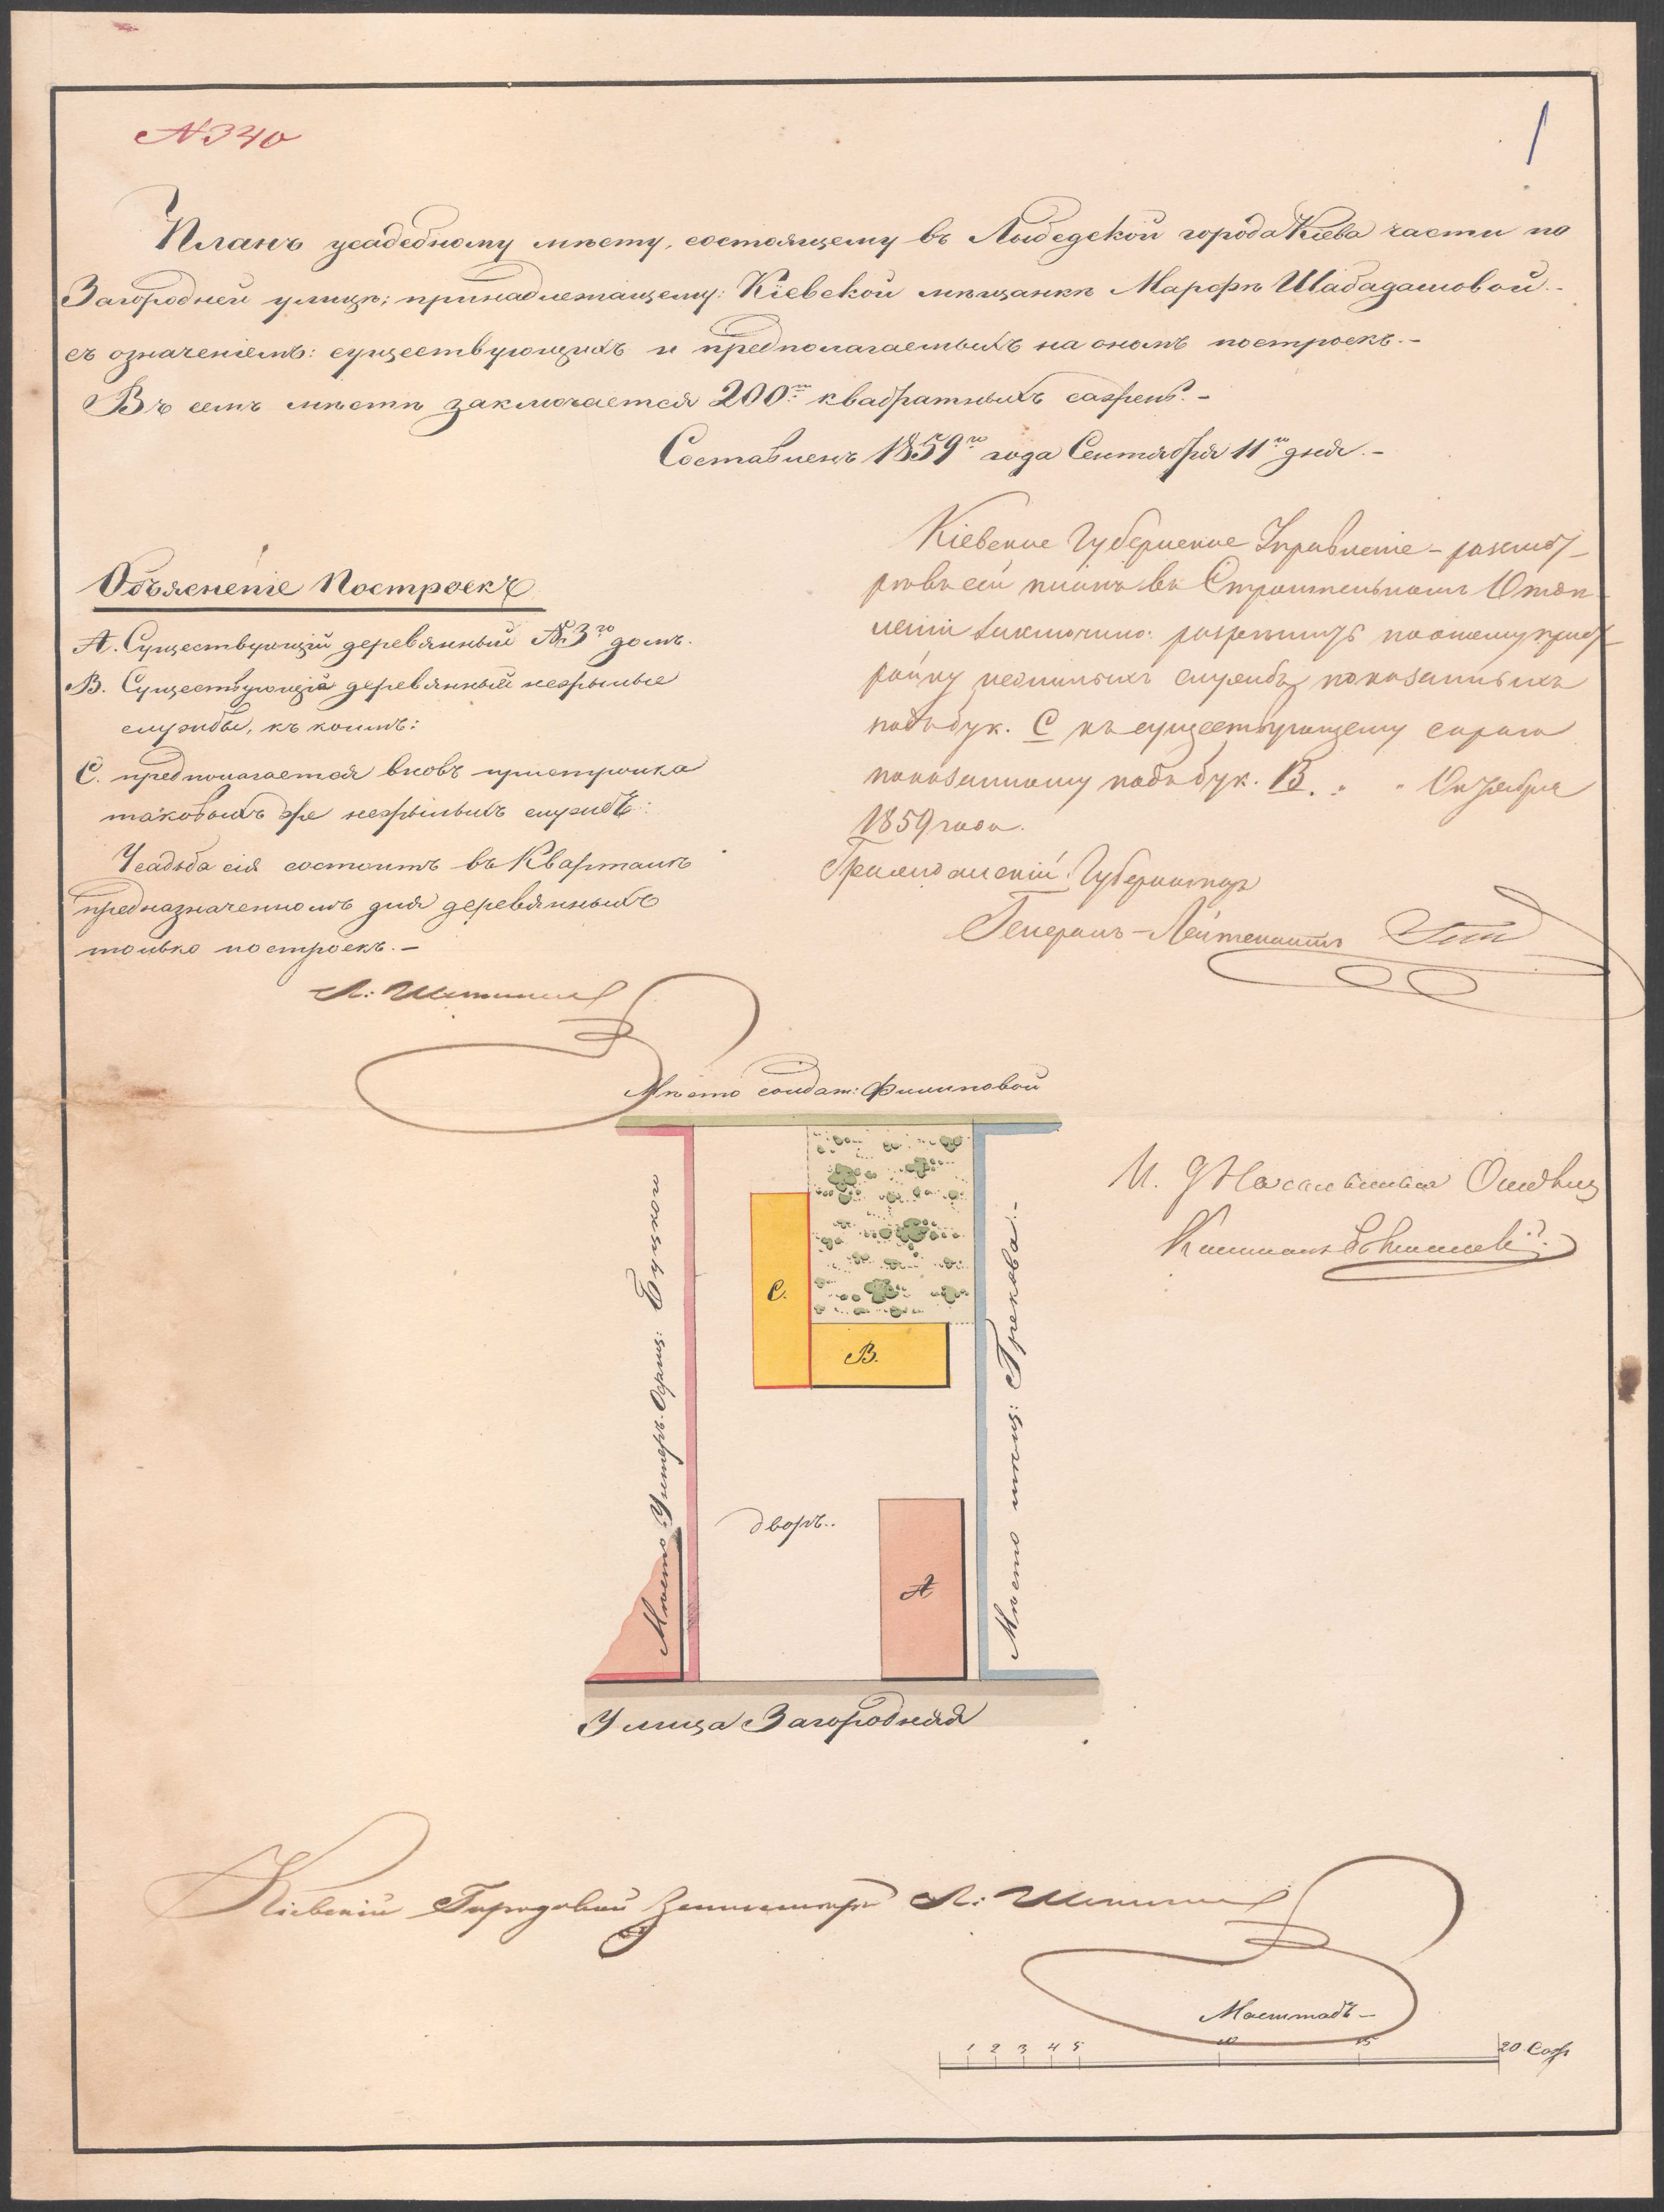 № 340
1
Планъ усадебному мѣсту, состоящему въ Лыбедской города Кіева части по
Загородней улицѣ; принадлежащему: Кіевской мѣщанкѣ Марфѣ Шабадашовой.-
съ означеніемъ: существующихъ и предполагаемыхъ на ономъ построекъ.-
Въ семъ мѣстѣ заключается 200ти квадратныхъ сажень.-
Составленъ 1859го года Сентября 11го дня.-
Объясненіе Построекъ
А. Существующій деревянный №3го домъ.
В. Существующія деревянныя нежилые
службы, къ коимъ:
С. предполагается вновь пристройка
таковыхъ же нежилыхъ службъ:
Усадьба сія состоитъ въ Кварталѣ
предназначенномъ для деревянныхъ
только построекъ.-
Л:
Кіевское Губернское Правленіе - разсмот-
рѣвъ сей планъ въ Строительномъ Отдѣ-
леніи заключило: разрѣшить по оному прист-
ройку нежилыхъ службъ показанныхъ
подъ бук. С къ существующему сараю
показанному подъ бук. В. " " Октября
1859 года.
Гражданскій Губернаторъ
Генералъ-Лейтенантъ
Мѣсто солдат: Филиповой
Мѣсто Унтеръ-Офиц: Буцкого
Мѣсто мѣщ: Грекова.-
С.
В.
дворъ..
А
Улица Загородняя
И. д. Начальника
Кіевскій Городовой Землемѣръ Л:
Масштабъ-
1 2 3 4 5 10 15 20 Саж